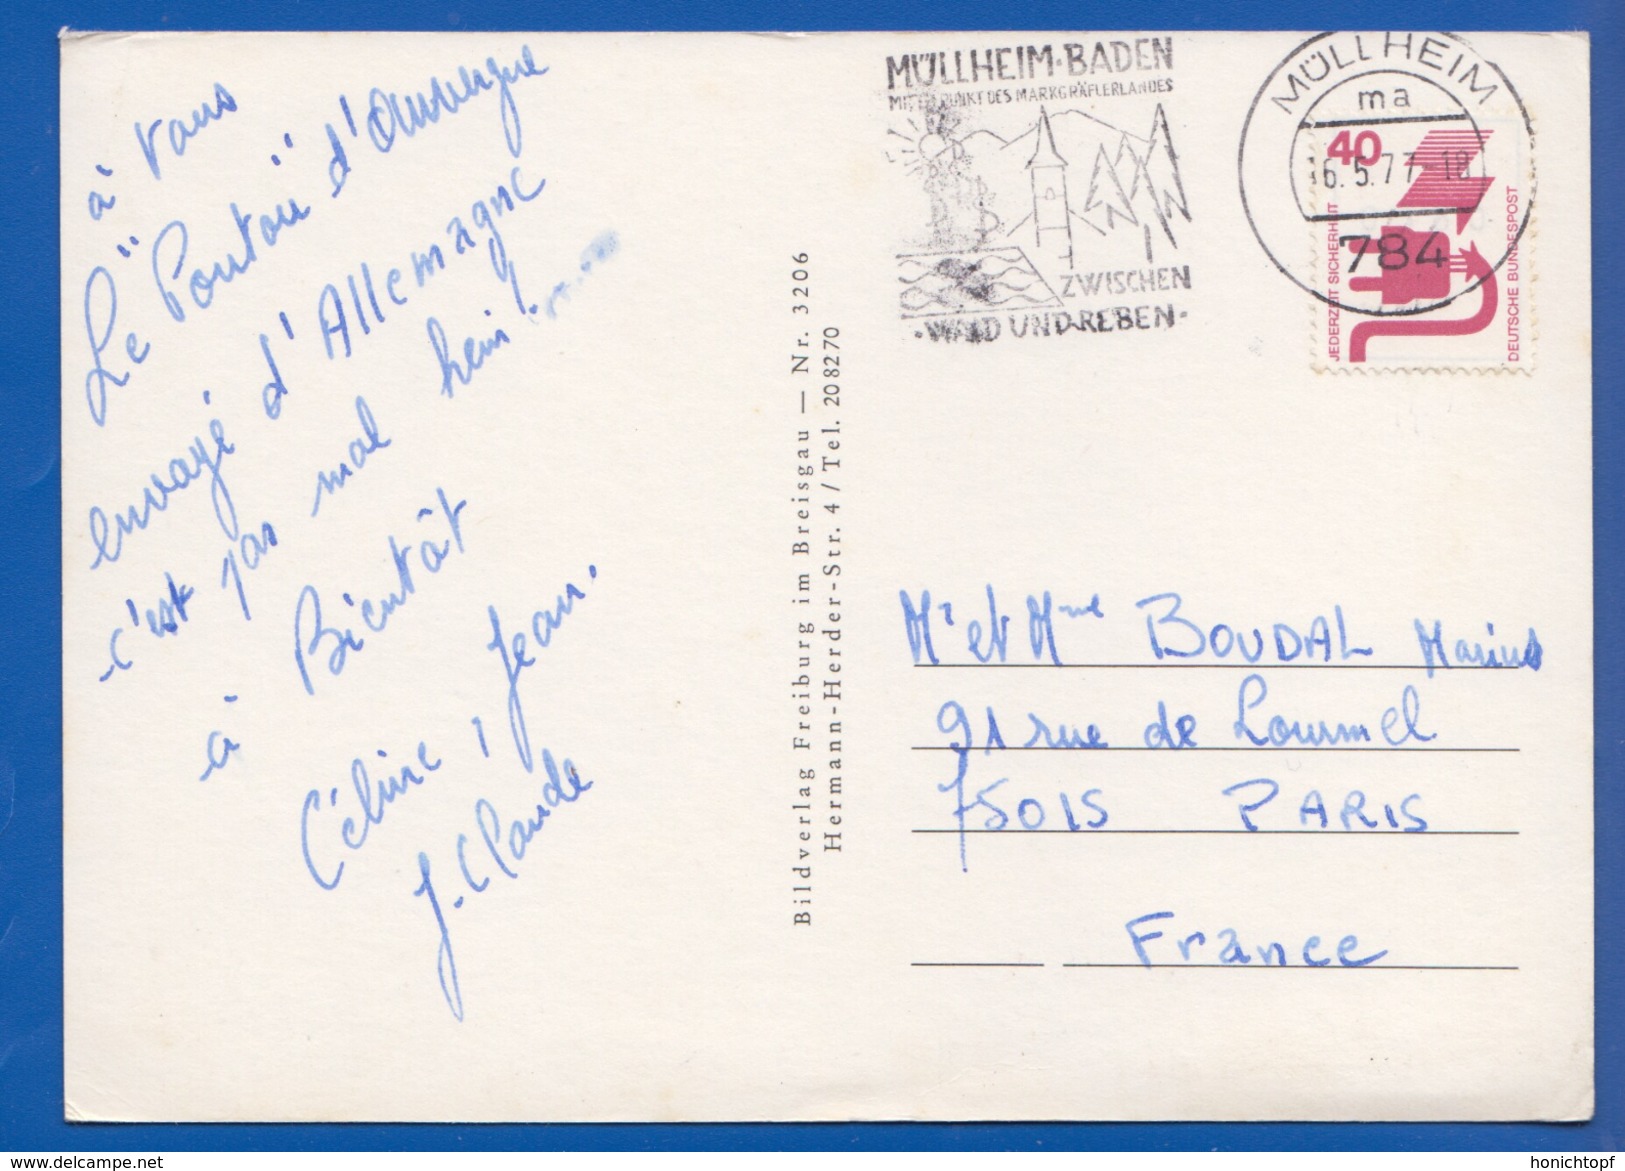 à vous
Le "Poutou" d'Auvergne
envoyé d'Allemagne
c'est pas mal hein!
à Bientôt
Céline, Jean.
J. Claude
Bildverlag Freiburg im Breisgau — Nr. 3206
Hermann-Herder-Str. 4 / Tel. 208270
MÜLLHEIM·BADEN
MITTELPUNKT DES MARKGRÄFLERLANDES
ZWISCHEN
·WALD UND REBEN·
MÜLLHEIM
ma
16.5.77-18
784
40
JEDERZEIT SICHERHEIT
DEUTSCHE BUNDESPOST
Mr et Mme BOUDAL Marius
91 rue de Lourmel
75015 PARIS
France
www.delcampe.net
honichtopf